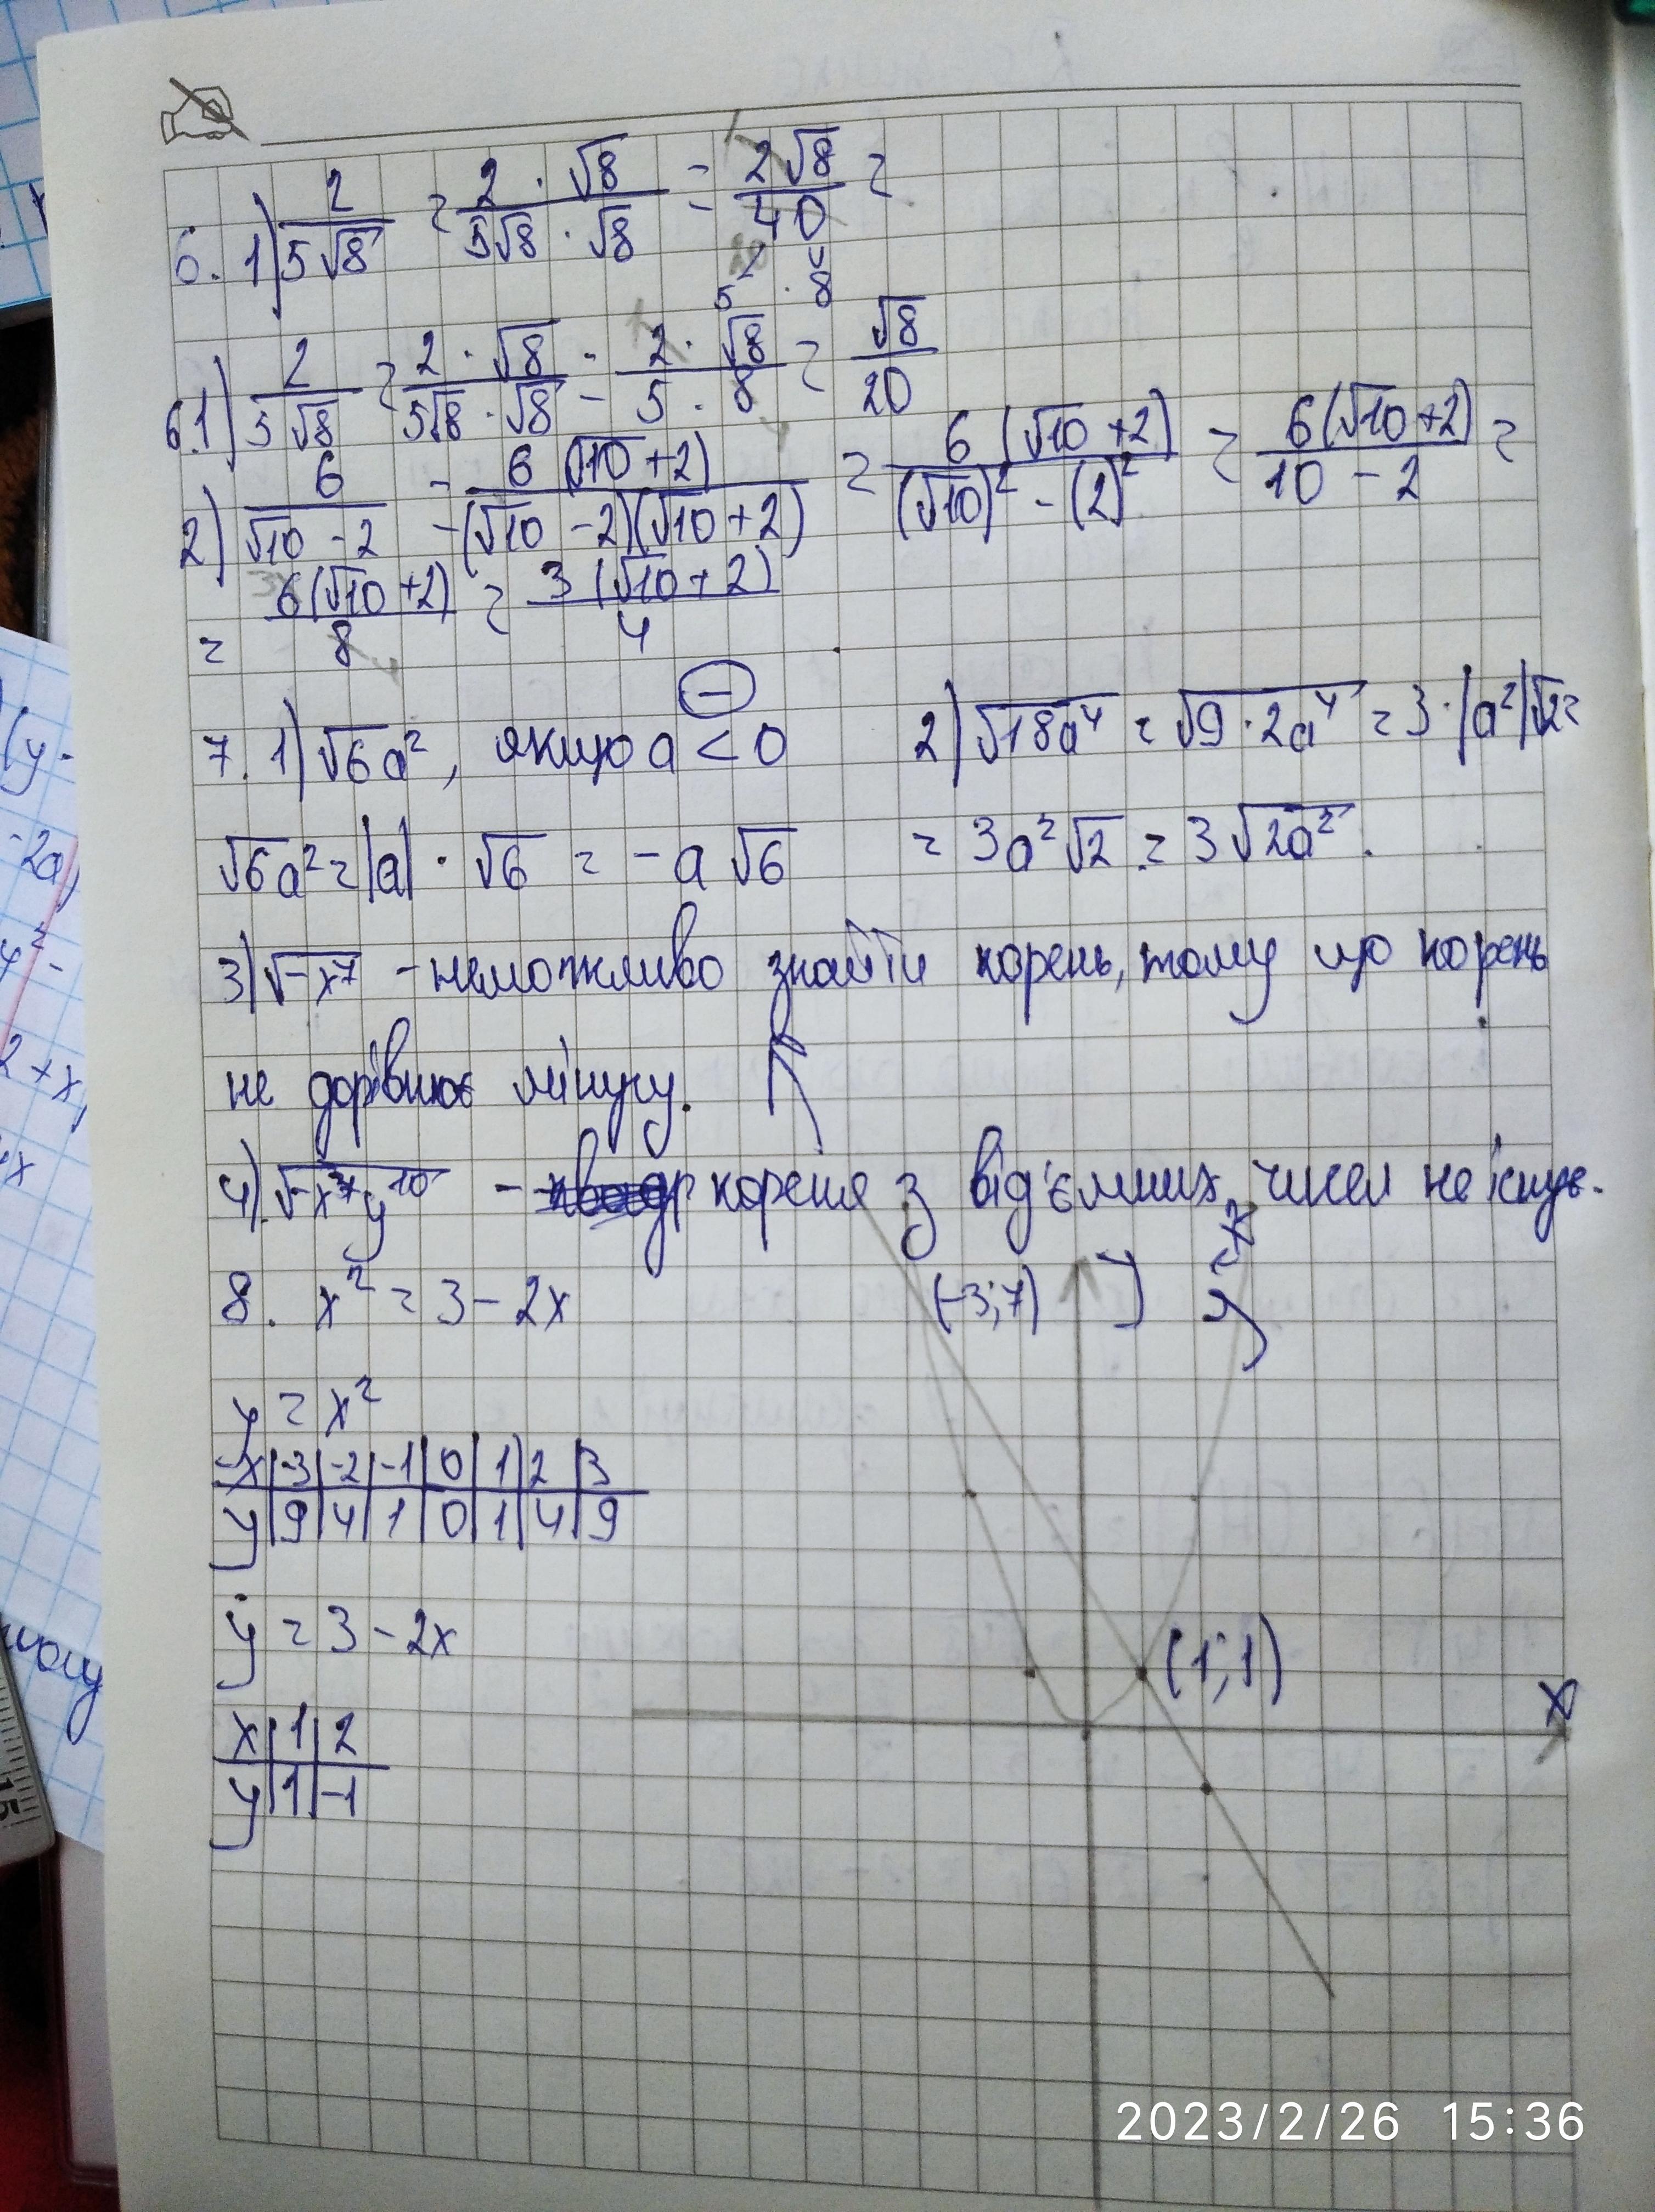 6. 1) 2/(5√8) = (2 · √8)/(5√8 · √8) = 2√8/40 =
5 · 8
6.1) 2/(5√8) = (2 · √8)/(5√8 · √8) = (2 · √8)/(5 · 8) = √8/20
2) 6/(√10 - 2) = 6(√10 + 2)/((√10 - 2)(√10 + 2)) = 6(√10 + 2)/((√10)² - (2)²) = 6(√10 + 2)/(10 - 2) =
= 6(√10 + 2)/8 = 3(√10 + 2)/4
7. 1) √6a², якщо a < 0
√6a² = |a| · √6 = -a√6
2) √18a⁴ = √9·2a⁴ = 3·|a²|√2 =
= 3a²√2 = 3√2a².
3) √-x⁷ - неможливо знайти корень, тому що корень
не дорівнює мінусу.
4) √-x⁷y¹⁰ - кореня з від'ємних чисел не існує.
8. x² = 3 - 2x
y = x²
x | -3 | -2 | -1 | 0 | 1 | 2 | 3
y | 9 | 4 | 1 | 0 | 1 | 4 | 9
y = 3 - 2x
x | 1 | 2
y | 1 | -1
(-3; 7)
y
y = x²
(1; 1)
x
15
2023/2/26 15:36